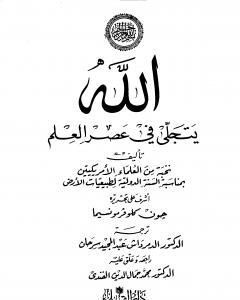 الله
يتجلى في عصر العلم
تأليف
نخبة من العلماء الأمريكيين
بمناسبة السنة الدولية لطبيعيات الأرض
أشرف على تحريره
جون كلوفر مونسيما
ترجمة
الدكتور الدمرداش عبد المجيد سرحان
راجعه وعلق عليه
الدكتور محمد جمال الدين الفندي